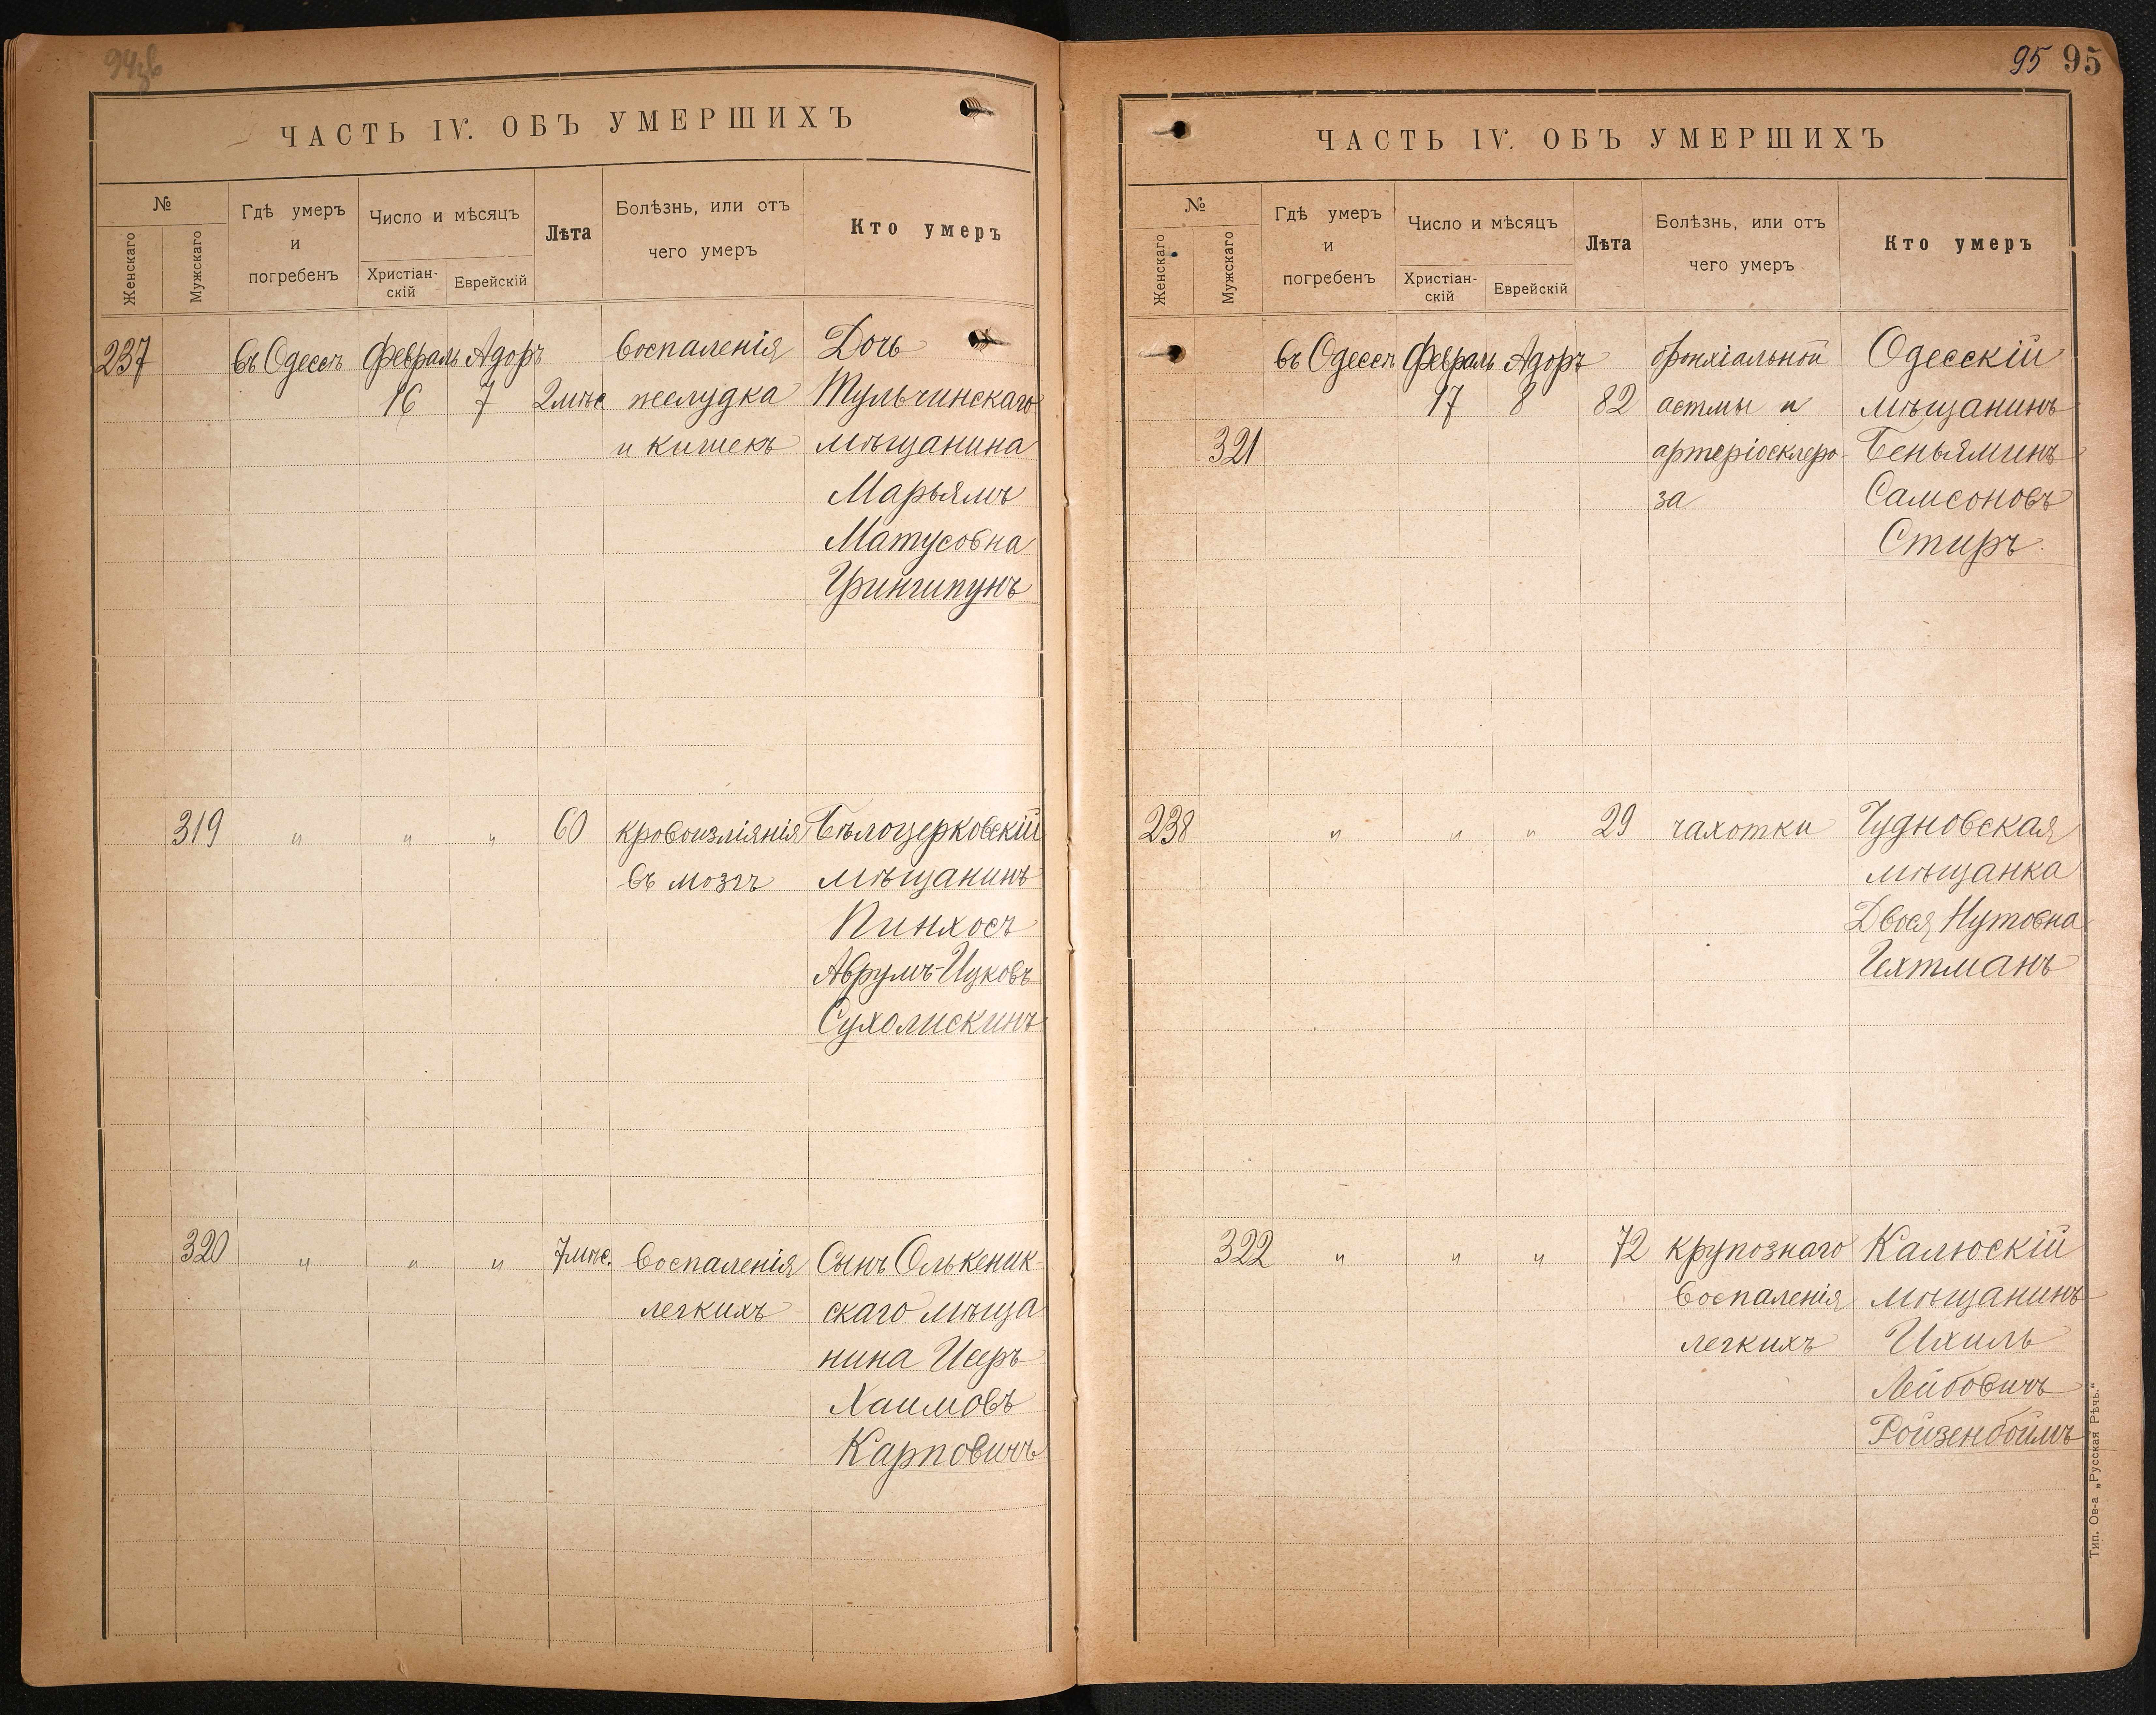 94зв
ЧАСТЬ IV. ОБЪ УМЕРШИХЪ
№
Женскаго
Мужскаго
Гдѣ умеръ
и
погребенъ
Число и мѣсяцъ
Христіан-
скій
Еврейскій
Лѣта
Болѣзнь, или отъ
чего умеръ
Кто умеръ
237 въ Одессѣ Февраль Адоръ воспаленія Дочь
16 7 2 мѣс. желудка Тульчинскаго
и кишекъ мѣщанина
Марьямъ
Матусовна
Грингипунъ
319 " " " 60 кровоизліянія Бѣлоцерковскій
въ мозгъ мѣщанинъ
Пинхосъ
Аврумъ-Ицковъ
Сухолискинъ
320 " " " 7 мѣс. воспаленія Сынъ Олькеник-
легкихъ скаго мѣща
нина Исеръ
Хаимовъ
Карповичъ
95 95
ЧАСТЬ IV. ОБЪ УМЕРШИХЪ
№
Женскаго
Мужскаго
Гдѣ умеръ
и
погребенъ
Число и мѣсяцъ
Христіан-
скій
Еврейскій
Лѣта
Болѣзнь, или отъ
чего умеръ
Кто умеръ
въ Одессѣ Февраль Адоръ бронхіальной Одесскій
17 8 82 астмы и мѣщанинъ
321 артеріосклеро- Беньяминъ
за Самсоновъ
Стиръ
238 " " " 29 чахотки Чудновская
мѣщанка
Двося Нутовна
Гехтманъ
322 " " " 72 крупознаго Калюскій
воспаленія мѣщанинъ
легкихъ Ихиль
Лейбовичъ
Ройзенбоймъ
Тип. Ов-а „Русская Рѣчь."